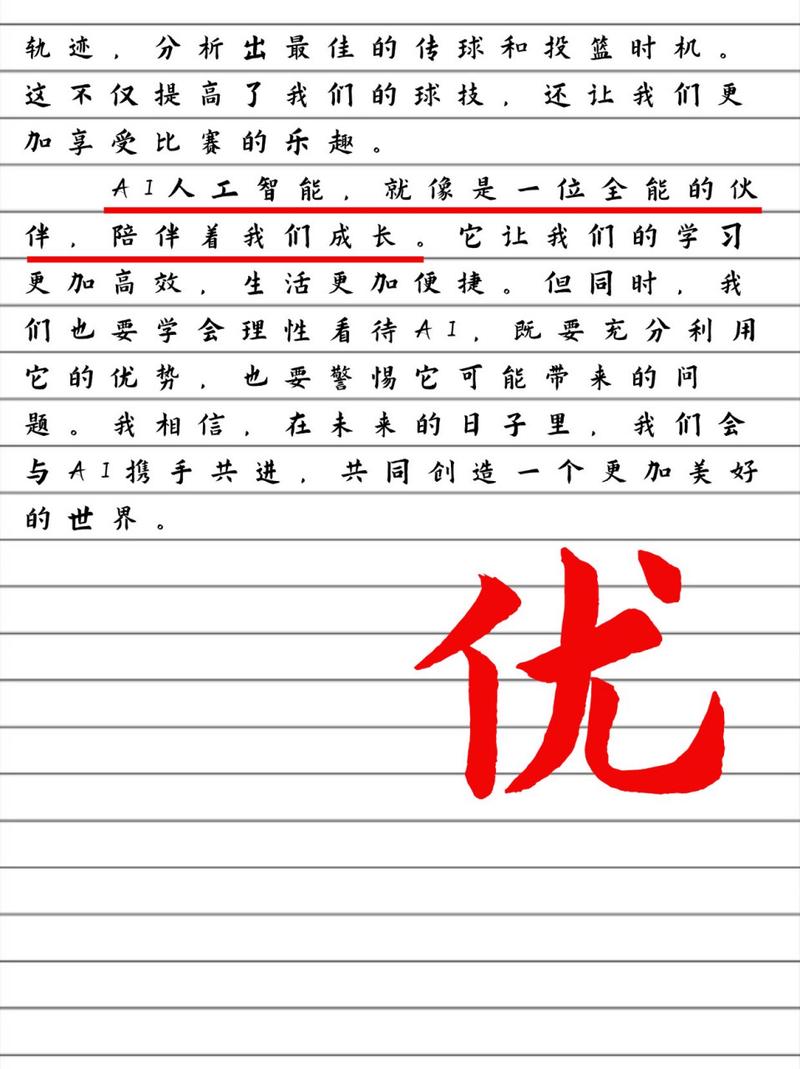 轨迹，分析出最佳的传球和投篮时机。
这不仅提高了我们的球技，还让我们更
加享受比赛的乐趣。
AI人工智能，就像是一位全能的伙
伴，陪伴着我们成长。它让我们的学习
更加高效，生活更加便捷。但同时，我
们也要学会理性看待AI，既要充分利用
它的优势，也要警惕它可能带来的问
题。我相信，在未来的日子里，我们会
与AI携手共进，共同创造一个更加美好
的世界。
优